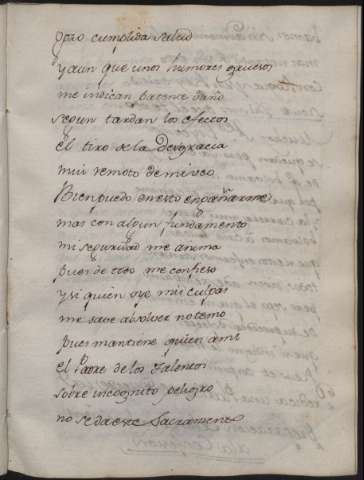 gozo cumplida salud
y aun que unos humores gruesos
me indican patente daño
segun tardan los efectos
el tiro de la desgracia
mui remoto de mi veo
Bien puedo en esto engañarme
mas con algun fundamento
mi seguridad me anima
pues de todo me confieso
y si quien oye mis culpas
me save absolver no temo
pues mantiene quien a mi
el Padre de los Talentos
sobre incognito peligro
no se da este Sacramento